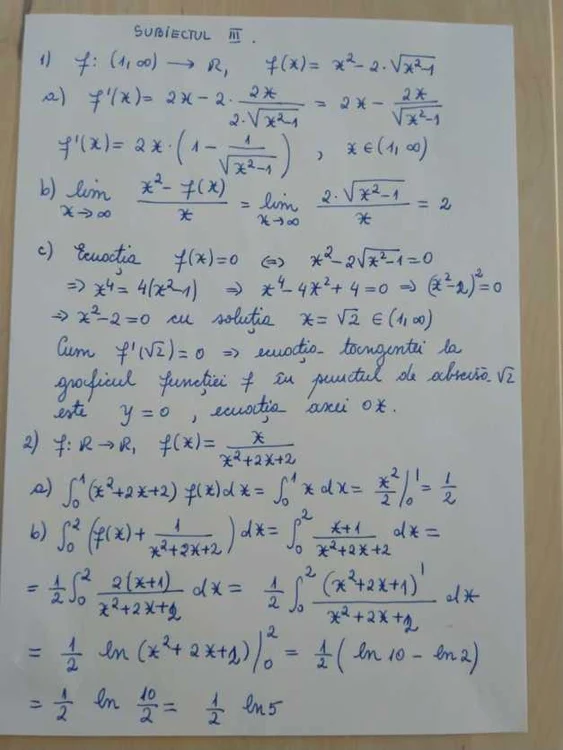 SUBIECTUL III.
1) f: (1,∞) → R, f(x) = x² - 2·√(x²-1)
a) f'(x) = 2x - 2· 2x/(2·√(x²-1)) = 2x - 2x/√(x²-1)
f'(x) = 2x·(1 - 1/√(x²-1)) , x ∈ (1,∞)
b) lim x→∞ (x² - f(x))/x = lim x→∞ (2·√(x²-1))/x = 2
c) Ecuația f(x)=0 ⇔ x²-2√(x²-1)=0
⇒ x⁴ = 4(x²-1) ⇒ x⁴-4x²+4=0 ⇒ (x²-2)²=0
⇒ x²-2=0 cu soluția x=√2 ∈ (1,∞)
Cum f'(√2)=0 ⇒ ecuația tangentei la
graficul funcției f în punctul de abscisă √2
este y=0 , ecuația axei OX.
2) f: R→R, f(x) = x/(x²+2x+2)
a) ∫₀¹ (x²+2x+2) f(x)dx = ∫₀¹ x dx = x²/2 |₀¹ = 1/2
b) ∫₀² (f(x) + 1/(x²+2x+2)) dx = ∫₀² (x+1)/(x²+2x+2) dx =
= 1/2 ∫₀² 2(x+1)/(x²+2x+2) dx = 1/2 ∫₀² (x²+2x+1)'/(x²+2x+2) dx
= 1/2 ln (x²+2x+2) |₀² = 1/2 (ln 10 - ln 2)
= 1/2 ln 10/2 = 1/2 ln 5